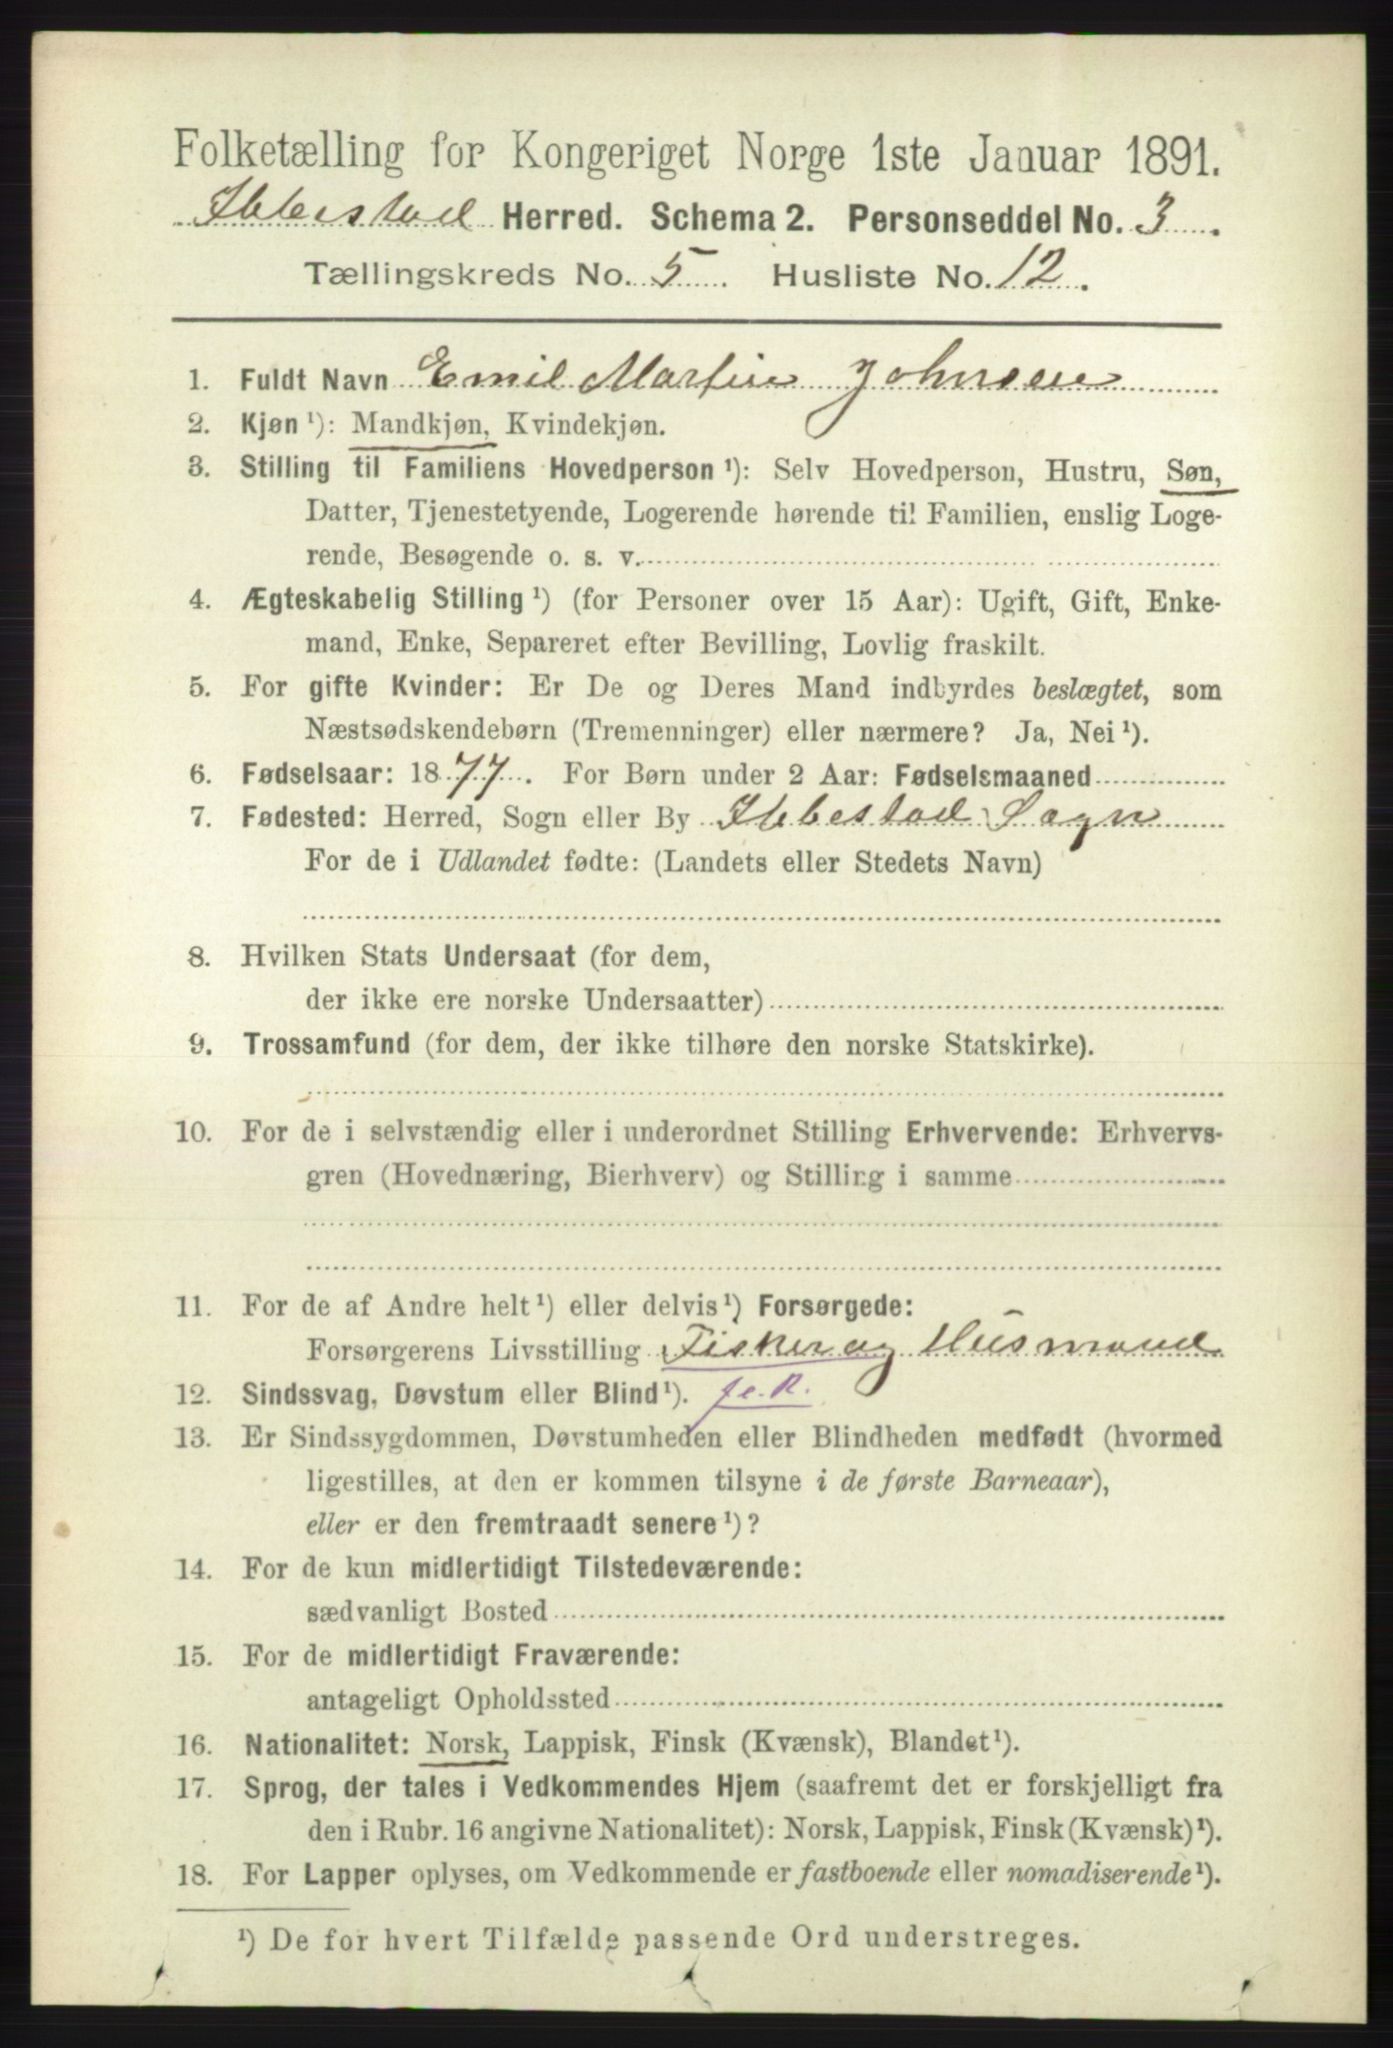 Folketælling for Kongeriget Norge 1ste Januar 1891.
Ibbestad Herred. Schema 2. Personseddel No. 3.
Tællingskreds No. 5. Husliste No. 12.
1. Fuldt Navn Emil Martin Johnsen
2. Kjøn ¹): Mandkjøn, Kvindekjøn.
3. Stilling til Familiens Hovedperson ¹): Selv Hovedperson, Hustru, Søn,
Datter, Tjenestetyende, Logerende hørende til Familien, enslig Loge-
rende, Besøgende o. s. v.
4. Ægteskabelig Stilling ¹) (for Personer over 15 Aar): Ugift, Gift, Enke-
mand, Enke, Separeret efter Bevilling, Lovlig fraskilt.
5. For gifte Kvinder: Er De og Deres Mand indbyrdes beslægtet, som
Næstsødskendebørn (Tremenninger) eller nærmere? Ja, Nei ¹).
6. Fødselsaar: 1877. For Børn under 2 Aar: Fødselsmaaned
7. Fødested: Herred, Sogn eller By Ibbestad Sogn
For de i Udlandet fødte: (Landets eller Stedets Navn)
8. Hvilken Stats Undersaat (for dem,
der ikke ere norske Undersaatter)
9. Trossamfund (for dem, der ikke tilhøre den norske Statskirke).
10. For de i selvstændig eller i underordnet Stilling Erhvervende: Erhvervs-
gren (Hovednæring, Bierhverv) og Stilling i samme
11. For de af Andre helt ¹) eller delvis ¹) Forsørgede:
Forsørgerens Livsstilling Fisker og Husmand
12. Sindssvag, Døvstum eller Blind ¹).
13. Er Sindssygdommen, Døvstumheden eller Blindheden medfødt (hvormed
ligestilles, at den er kommen tilsyne i de første Barneaar),
eller er den fremtraadt senere ¹)?
14. For de kun midlertidigt Tilstedeværende:
sædvanligt Bosted
15. For de midlertidigt Fraværende:
antageligt Opholdssted
16. Nationalitet: Norsk, Lappisk, Finsk (Kvænsk), Blandet ¹).
17. Sprog, der tales i Vedkommendes Hjem (saafremt det er forskjelligt fra
den i Rubr. 16 angivne Nationalitet): Norsk, Lappisk, Finsk (Kvænsk) ¹).
18. For Lapper oplyses, om Vedkommende er fastboende eller nomadiserende ¹).
¹) De for hvert Tilfælde passende Ord understreges.